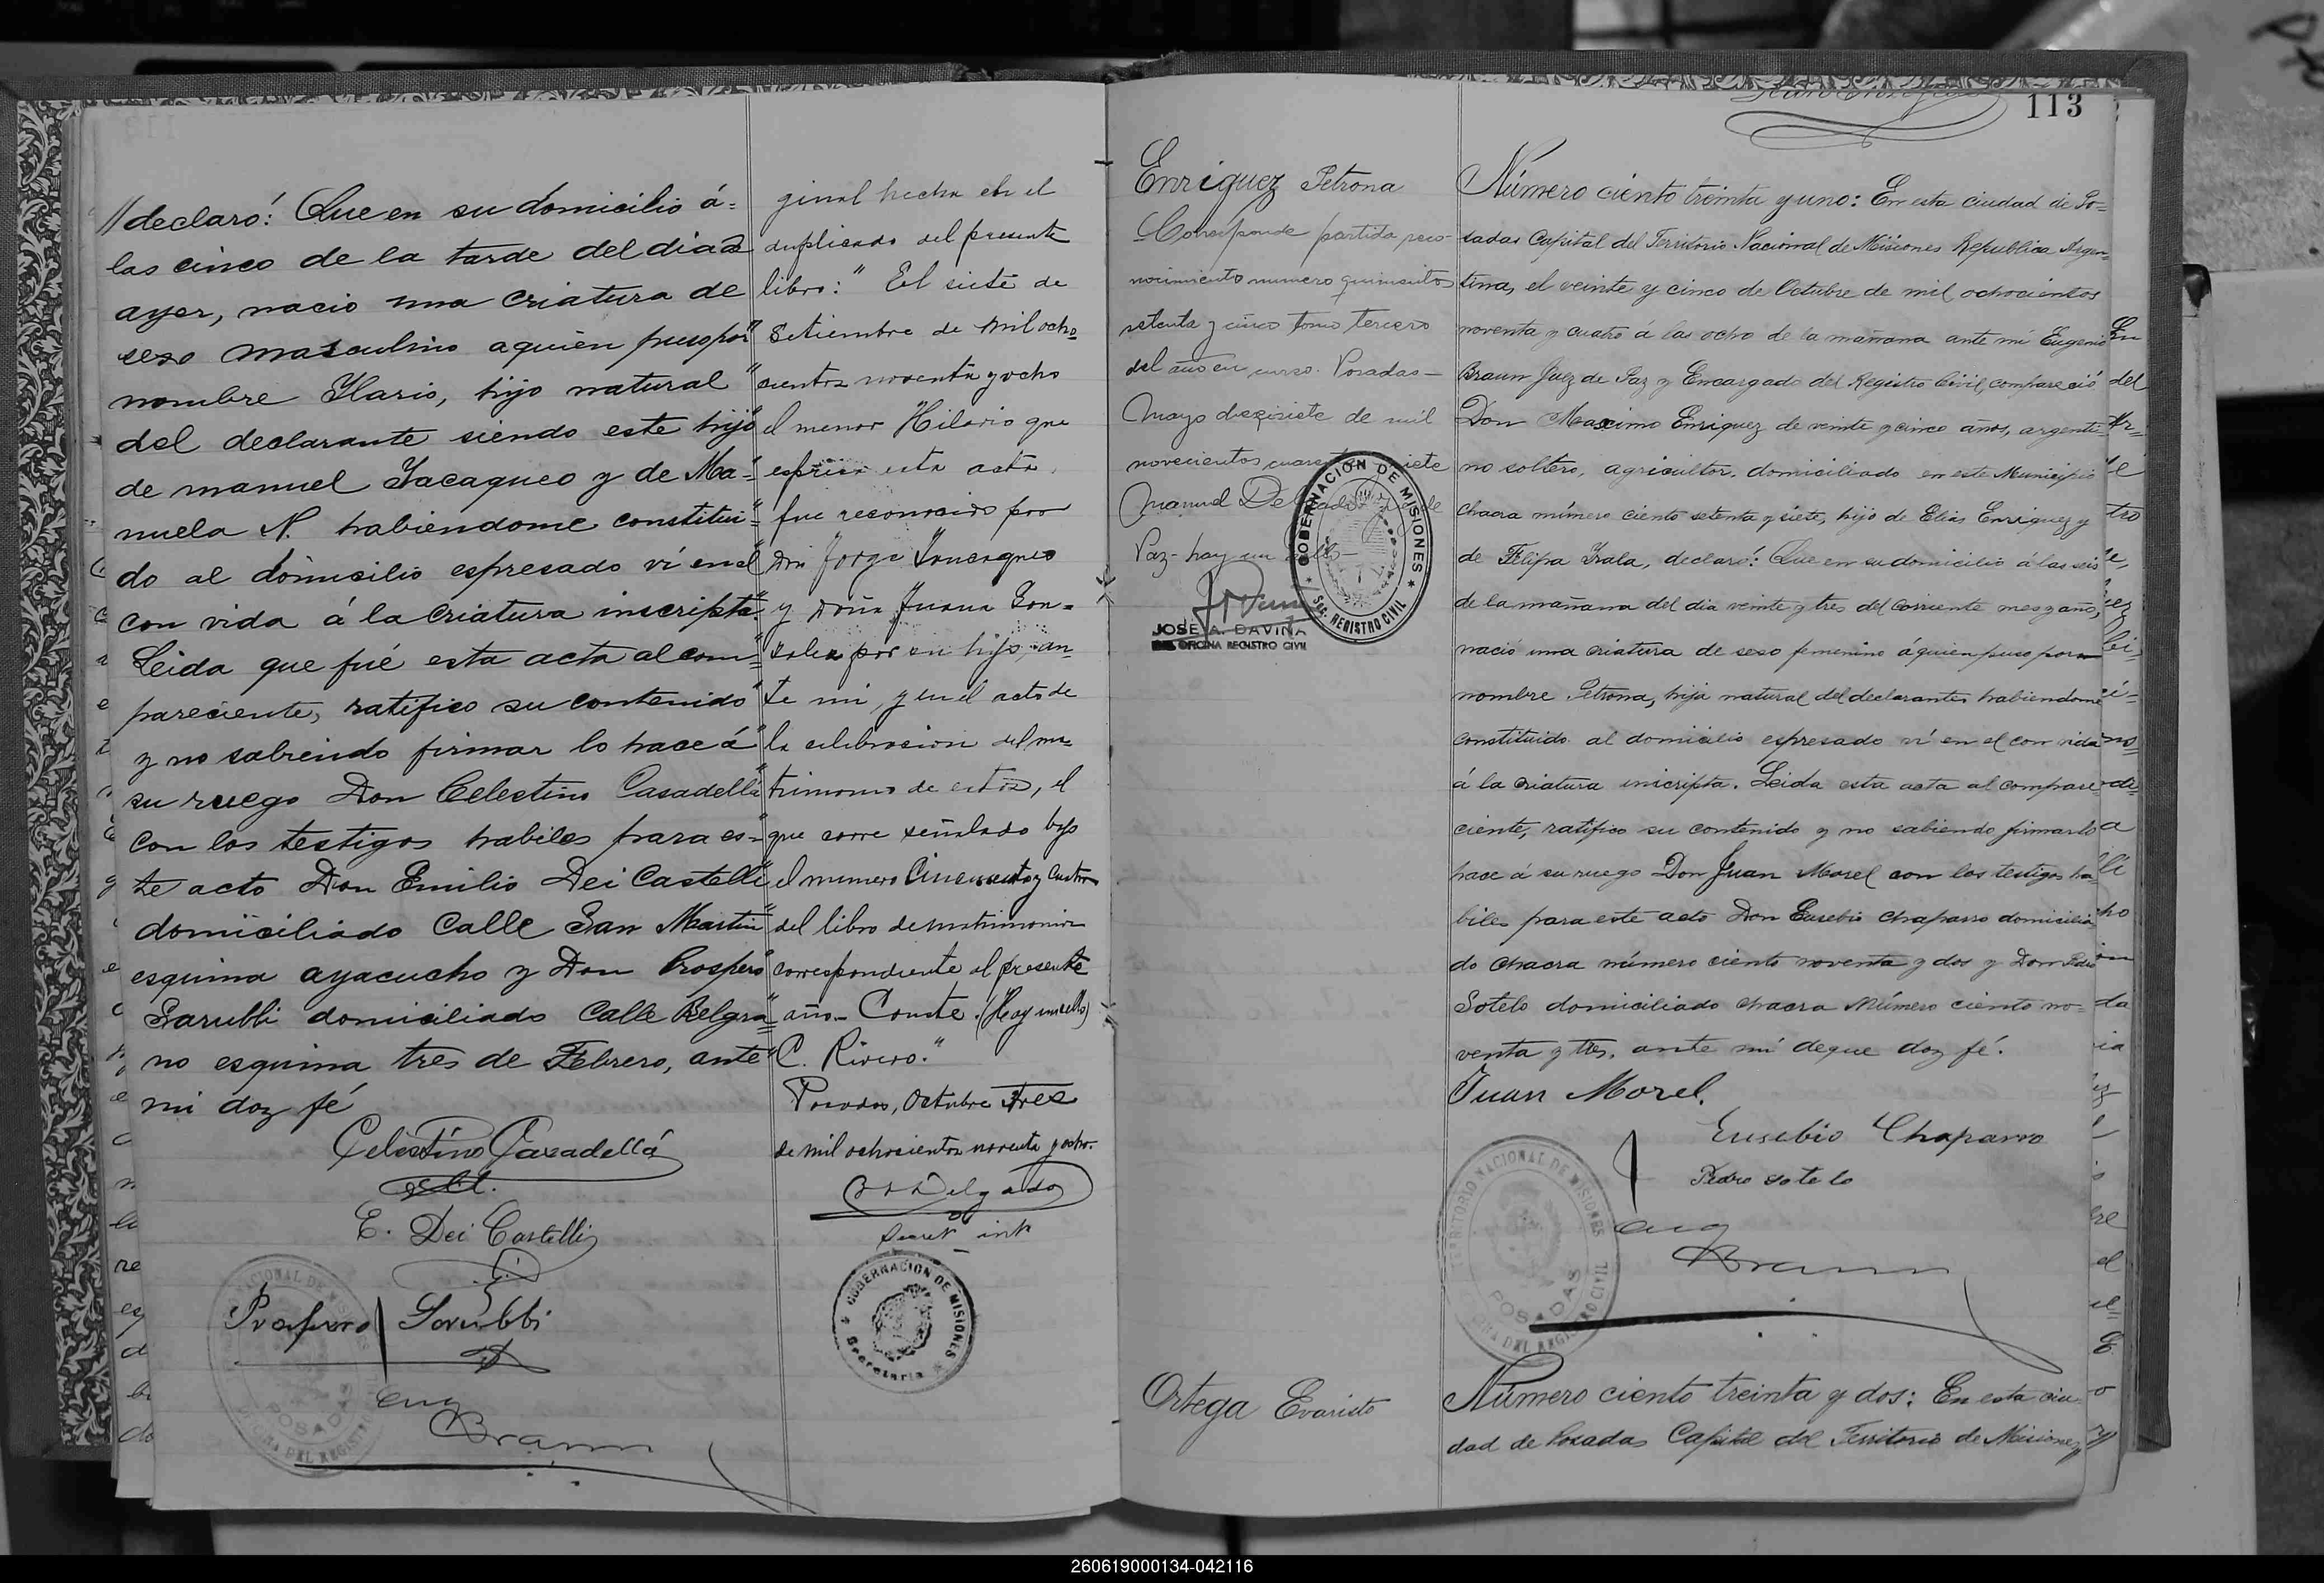 // declaró: Que en su domicilio á=
las cinco de la tarde del dia de
ayer, nacio una criatura de
sexo masculino a quien puso por
nombre Ilario, hijo natural
del declarante siendo este hijo
de manuel Yacaqueo y de Ma=
nuela N. habiendome constitui=
do al domicilio espresado ví en el
con vida á la criatura inscripta.
Leida que fué esta acta al com=
pareciente, ratifico su contenido
y no sabiendo firmar lo hace á
su ruego Don Celestino Casadellá
con los testigos habiles para es=
te acto Don Emilio Dei Castelli
domiciliado Calle San Martin
esquina ayacucho y Don Prospero
Sarubbi domiciliado Calle Belgra=
no esquina tres de Febrero, ante
mi doy fé
Celestino Casadellá
E. Dei Castelli
Prospero Sarubbi
Eug
Braun
ginal hecha en el
duplicado del presente
libro: " El siete de
Setiembre de mil ocho=
cientos noventa y ocho
el menor Hilario que
espresa esta acta
fue reconocido por
Don Jorge
y Doña Juana Gon=
zalez por su hijo, an-
te mi, y en el acto de
la celebracion del ma-
trimonio de estos, el
que corre señalado bajo
el numero Cincuenta y Cuatro
del libro de matrimonios
correspondiente al presente
año_ Conste. (Hay un sello)
C. Rivero."
Posadas, Octubre tres
de mil ochocientos noventa y ocho.
Delgado
Secret int
GOBERNACION DE MISIONES
Secretaria
113
Enriquez Petrona
Corresponde partida reco-
nocimiento numero quinientos
setenta y cinco tomo tercero
del año en curso. Posadas_
Mayo diezisiete de mil
novecientos cuarenta y siete
Manuel Delgado
Paz- hay un sello-
GOBERNACION DE MISIONES
SEC. REGISTRO CIVIL
JOSE A. DAVIÑA
OFICINA REGISTRO CIVIL
Número ciento treinta y uno: En esta ciudad de Po=
sadas Capital del Territorio Nacional de Misiones Republica Argen=
tina, el veinte y cinco de Octubre de mil ochocientos
noventa y cuatro á las ocho de la mañana ante mí Eugenio
Braun Juez de Paz y Encargado del Registro Civil, compareció
Don Maximo Enriquez de veinte y cinco años, argenti=
no soltero, agricultor, domiciliado en este Municipio
chacra número ciento setenta y siete, hijo de Elias Enriquez y
de Felipa Irala, declaró: Que en su domicilio á las seis
de la mañana del dia veinte y tres del corriente mes y año,
nació una criatura de sexo femenino á quien puso por
nombre Petrona, hija natural del declarante, habiendome
constituido al domicilio espresado ví en el con vida
á la criatura inscripta. Leida esta acta al compare-
ciente, ratifico su contenido y no sabiendo firmar lo
hace á su ruego Don Juan Morel con los testigos há=
biles para este acto Don Eusebio Chaparro domicilia-
do chacra número ciento noventa y dos y Don Pedro
Sotelo domiciliado chacra Número ciento no=
venta y tres, ante mí de que doy fé.
Juan Morel.
Eusebio Chaparro
Pedro Sotelo
Eug
Braun
TERRITORIO NACIONAL DE MISIONES
POSADAS
OFICINA DEL REGISTRO CIVIL
Ortega Evaristo
Número ciento treinta y dos: En esta ciu-
dad de Posadas Capital del Territorio de Misiones
260619000134-042116